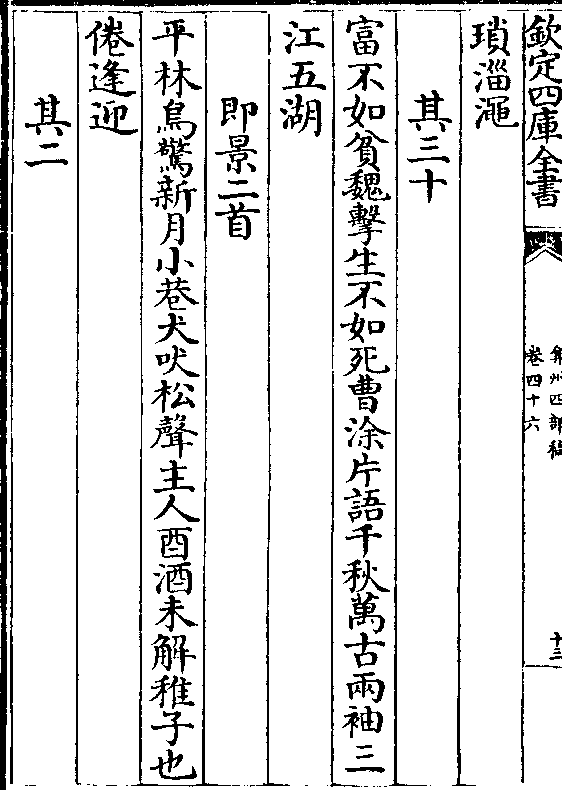 欽定四庫全書
弇州四部稿
卷四十六
十三
瑣淄澠
其三十
富不如貧魏擊生不如死曹涂片語千秋萬古兩袖三
江五湖
即景二首
平林鳥驚新月小巷犬吠松聲主人酉酒未解稚子也
倦逢迎
其二